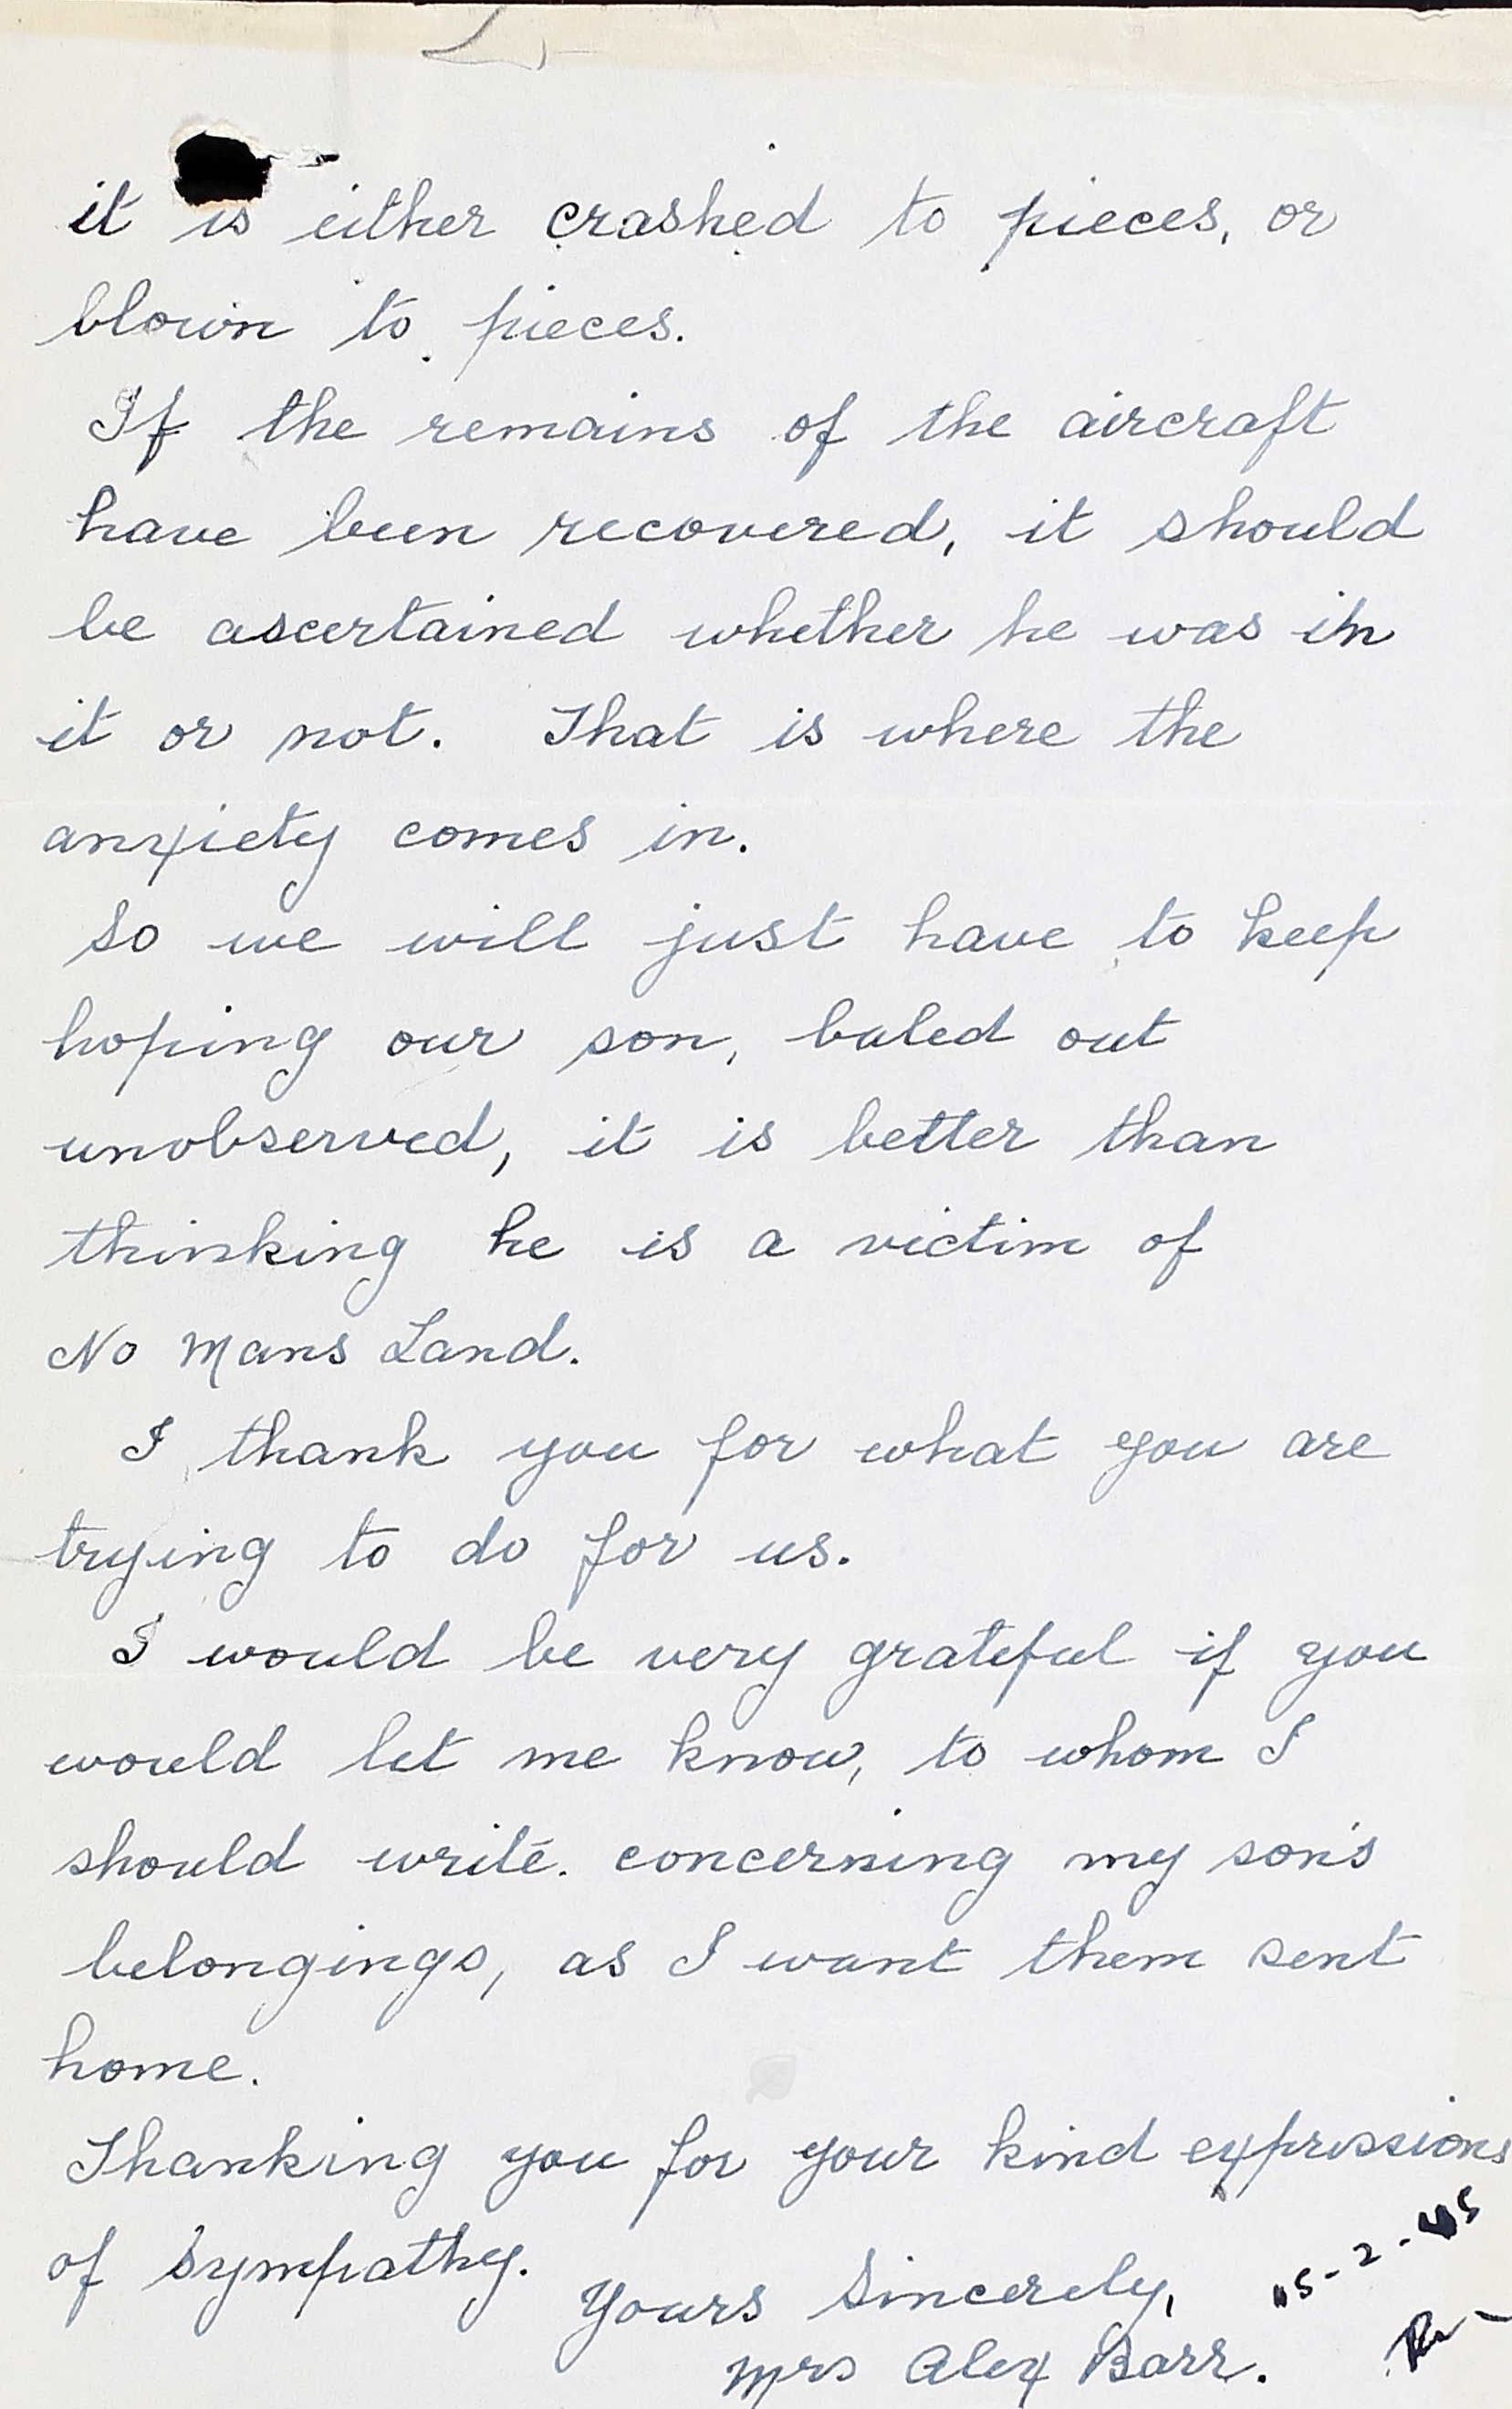 it is either crashed to pieces, or
blown to pieces.
If the remains of the aircraft
have been recovered, it should
be ascertained whether he was in
it or not. That is where the
anxiety comes in.
So we will just have to keep
hoping our son, baled out
unobserved, it is better than
thinking he is a victim of
No Mans Land.
I thank you for what you are
trying to do for us.
I would be very grateful if you
would let me know, to whom I
should write. concerning my son's
belongings, as I want them sent
home.
Thanking you for your kind expressions
of Sympathy.
Yours Sincerely,
Mrs Alex Barr.